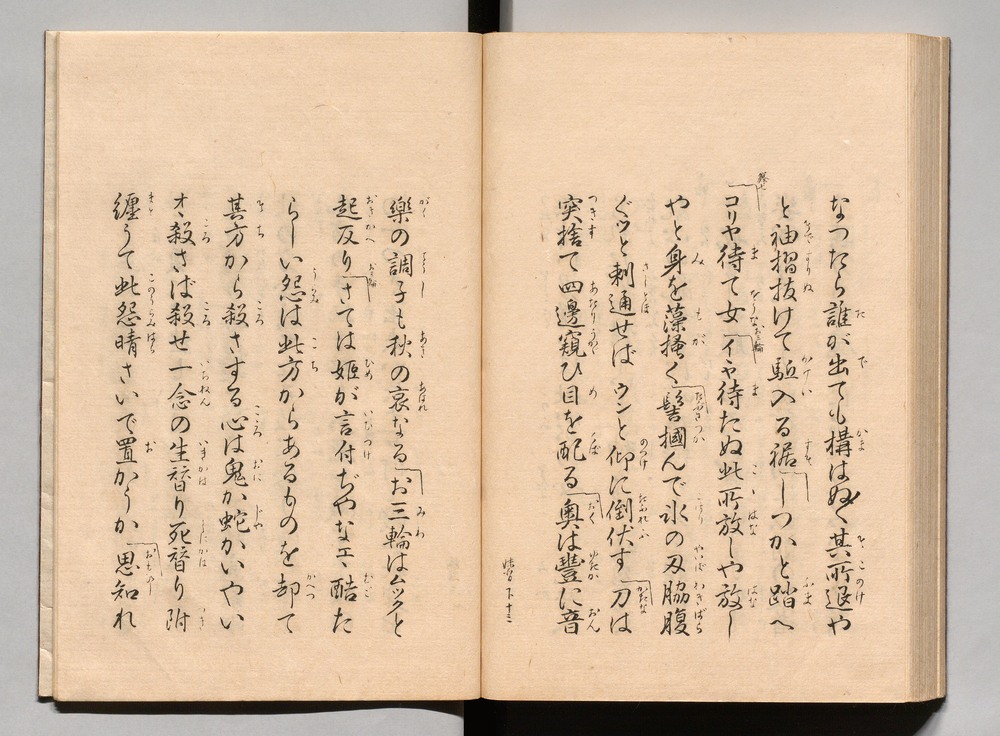 なつたら誰が出ても構はぬ〳〵其所退や
と袖摺抜けて駈入る裾「しつかと踏へ
コリヤ待て女「イヤ待たぬ此所放しや放し
やと身を藻掻く「髻摑んで氷の刄脇腹
ぐツと刺通せば ウンと仰に倒伏す「刀は
突捨て四邊窺ひ目を配る「奥は豐に音
樂の調子も秋の哀なる「お三輪はムツクと
起反り「さては姫が言付ぢやなエヽ酷た
らしい怨は此方からあるものを却て
其方から殺さする心は鬼か蛇かいやい
オヽ殺さば殺せ一念の生替り死替り附
纏うて此怨晴さいで置かうか「思知れ